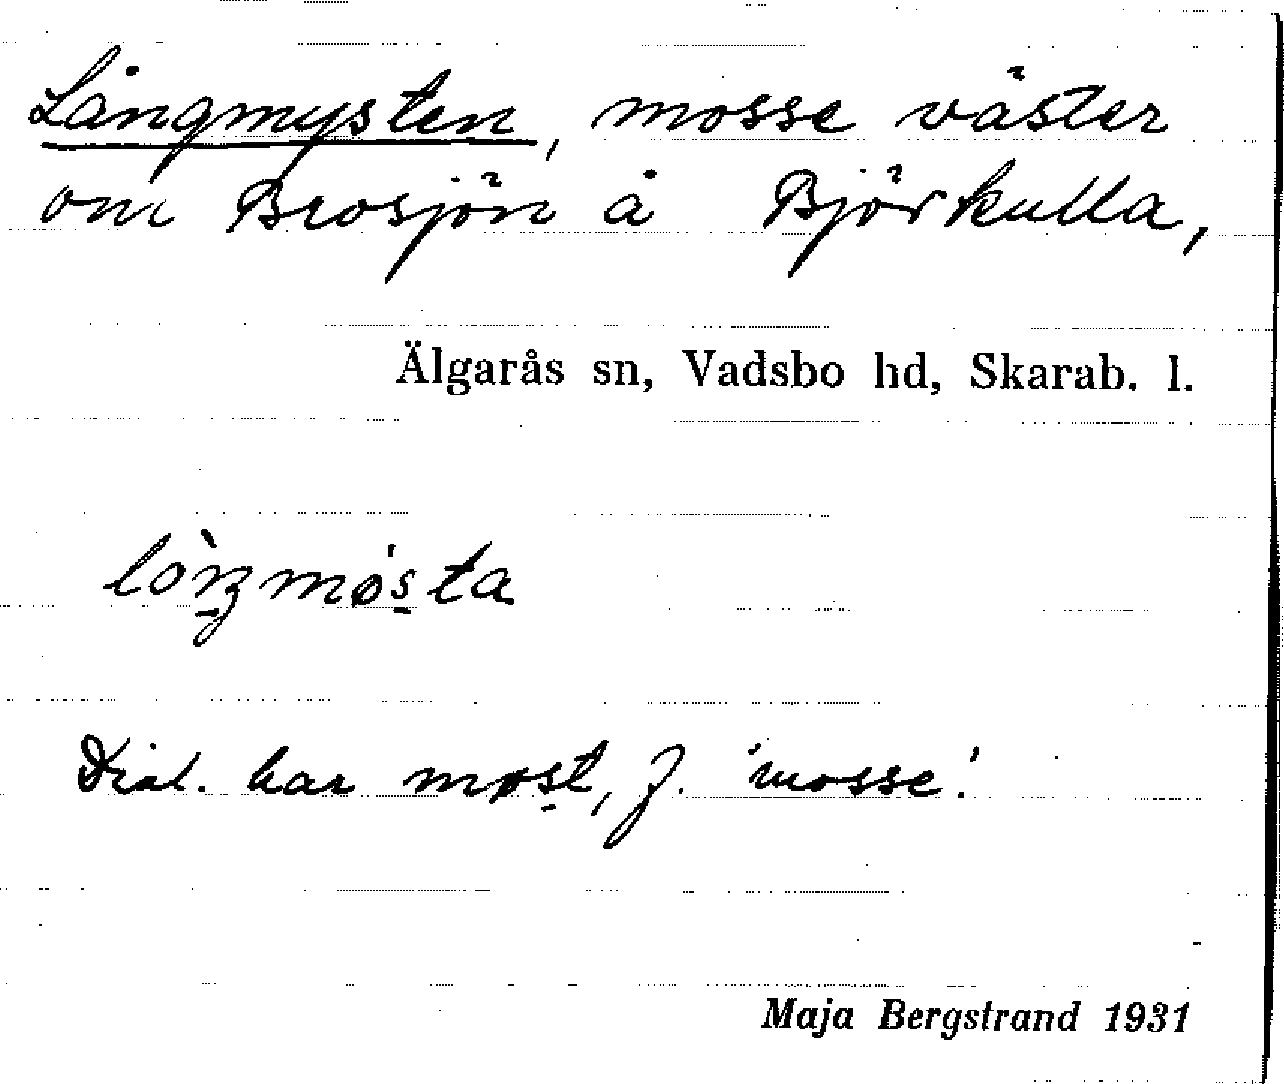 Långmysten, mosse väster
om Brosjön å Björkulla,
Älgarås sn, Vadsbo hd, Skarab. l.
lòŋmø̀sta
Dial. har møst, f. 'mosse'.
Maja Bergstrand 1931